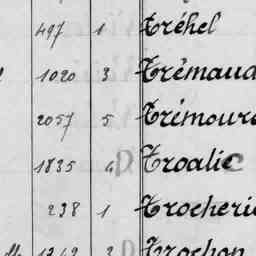 497 1 Tréhel
1020 3 Trémaud
2057 5 Trémoure
1835 4 Troalic
238 1 Trocheri
Trochon